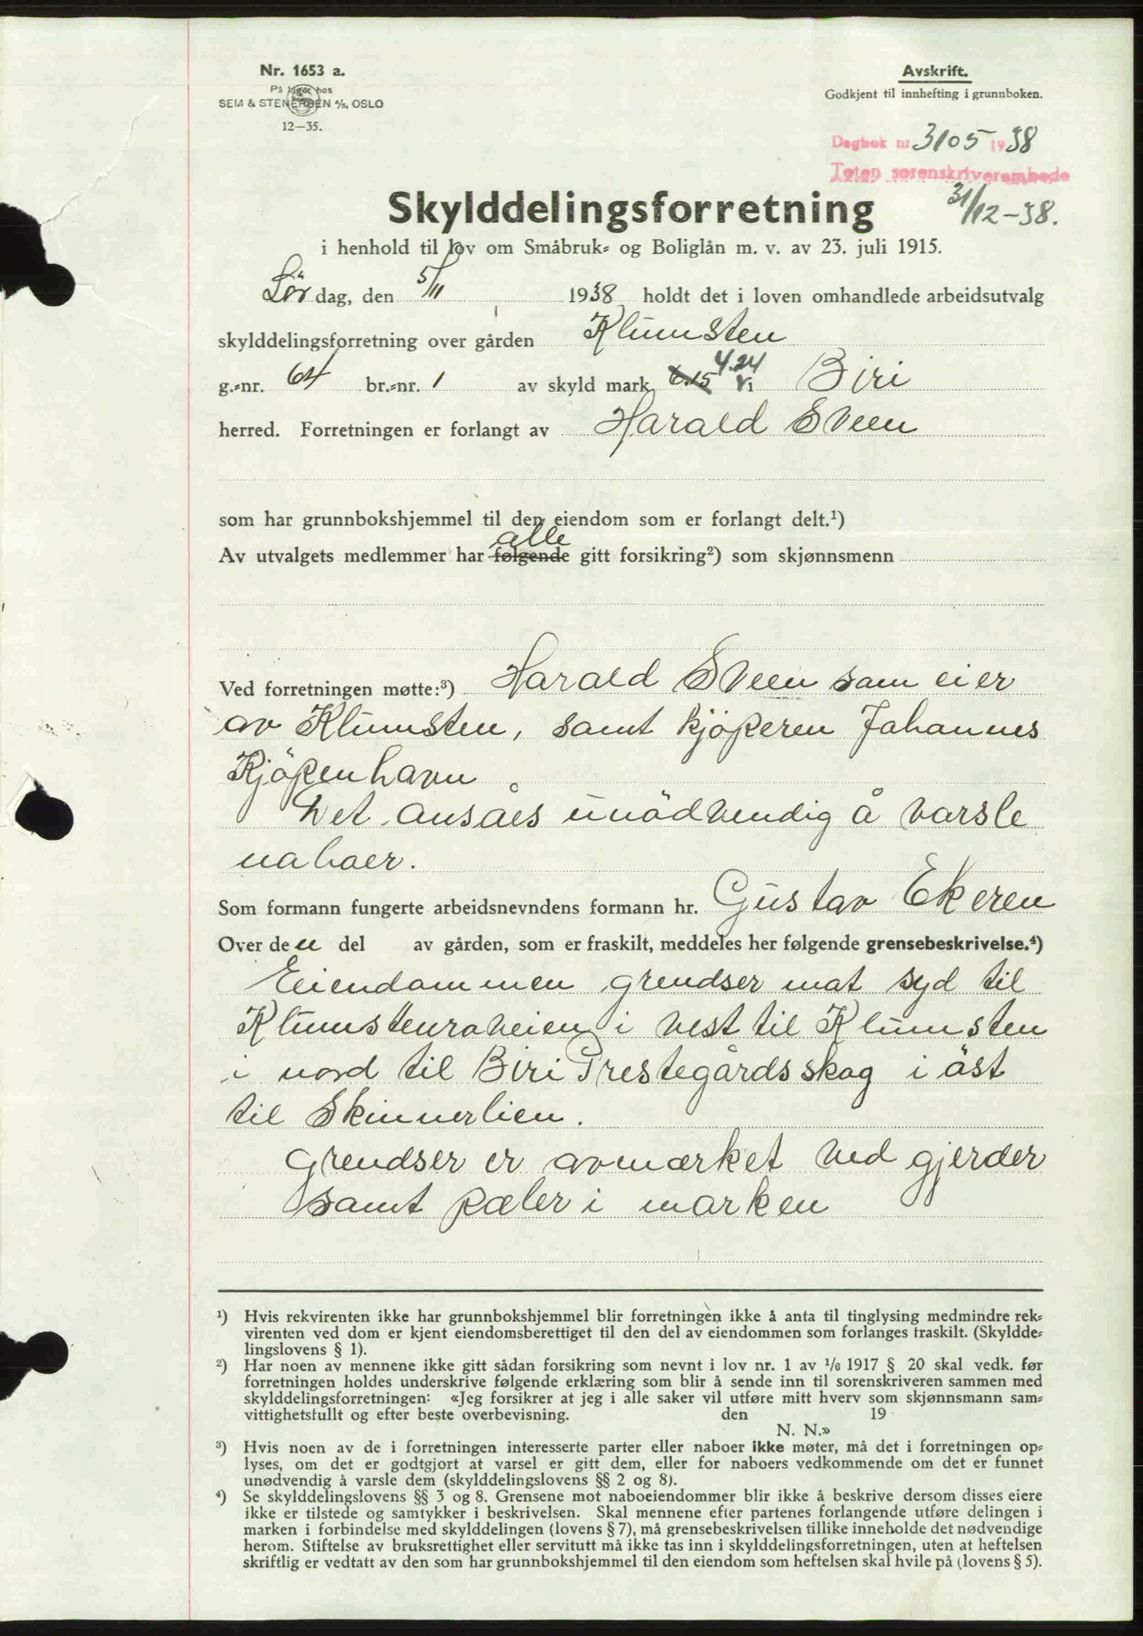 Nr. 1653 a.
På lager hos
SEM & STENERSEN A/S, OSLO
12—35.
Avskrift.
Godkjent til innhefting i grunnboken.
Dagbok nr 3105 1938
Toten sorenskriverembede
31/12-38.
Skylddelingsforretning
i henhold til lov om Småbruk- og Boliglån m. v. av 23. juli 1915.
Lördag, den 5/11 1938 holdt det i loven omhandlede arbeidsutvalg
skylddelingsforretning over gården Klumsten
g.-nr. 64 br.-nr. 1 av skyld mark 6.15 4.24 i Biri
herred. Forretningen er forlangt av Harald Sveen
som har grunnbokshjemmel til den eiendom som er forlangt delt.¹)
alle
Av utvalgets medlemmer har følgende gitt forsikring²) som skjønnsmenn
Ved forretningen møtte:³) Harald Sveen som eier
av Klumsten, samt kjöperen Johannes
Kjöpenhavn
Det ansåes unödvendig å varsle
naboer.
Som formann fungerte arbeidsnevndens formann hr. Gustav Ekeren
Over den del av gården, som er fraskilt, meddeles her følgende grensebeskrivelse.⁴)
Eiendommen grendser mot syd til
Klumstenroveien i vest til Klumsten
i nord til Biri Prestegårdsskog i öst
til Skinnerlien.
Grendser er avmærket ved gjerder
samt pæler i marken
¹) Hvis rekvirenten ikke har grunnbokshjemmel blir forretningen ikke å anta til tinglysing medmindre rek-
virenten ved dom er kjent eiendomsberettiget til den del av eiendommen som forlanges fraskilt. (Skyldde-
lingslovens § 1).
²) Har noen av mennene ikke gitt sådan forsikring som nevnt i lov nr. 1 av 1/6 1917 § 20 skal vedk. før
forretningen holdes underskrive følgende erklæring som blir å sende inn til sorenskriveren sammen med
skylddelingsforretningen: «Jeg forsikrer at jeg i alle saker vil utføre mitt hverv som skjønnsmann sam-
vittighetsfullt og efter beste overbevisning. den 19
N. N.»
³) Hvis noen av de i forretningen interesserte parter eller naboer ikke møter, må det i forretningen op-
lyses, om det er godtgjort at varsel er gitt dem, eller for naboers vedkommende om det er funnet
unødvendig å varsle dem (skylddelingslovens §§ 2 og 8).
⁴) Se skylddelingslovens §§ 3 og 8. Grensene mot naboeiendommer blir ikke å beskrive dersom disses eiere
ikke er tilstede og samtykker i beskrivelsen. Skal mennene efter partenes forlangende utføre delingen i
marken i forbindelse med skylddelingen (lovens § 7), må grensebeskrivelsen tillike inneholde det nødvendige
herom. Stiftelse av bruksrettighet eller servitutt må ikke tas inn i skylddelingsforretningen, uten at heftelsen
skriftlig er vedtatt av den som har grunnbokshjemmel til den eiendom som heftelsen skal hvile på (lovens § 5).